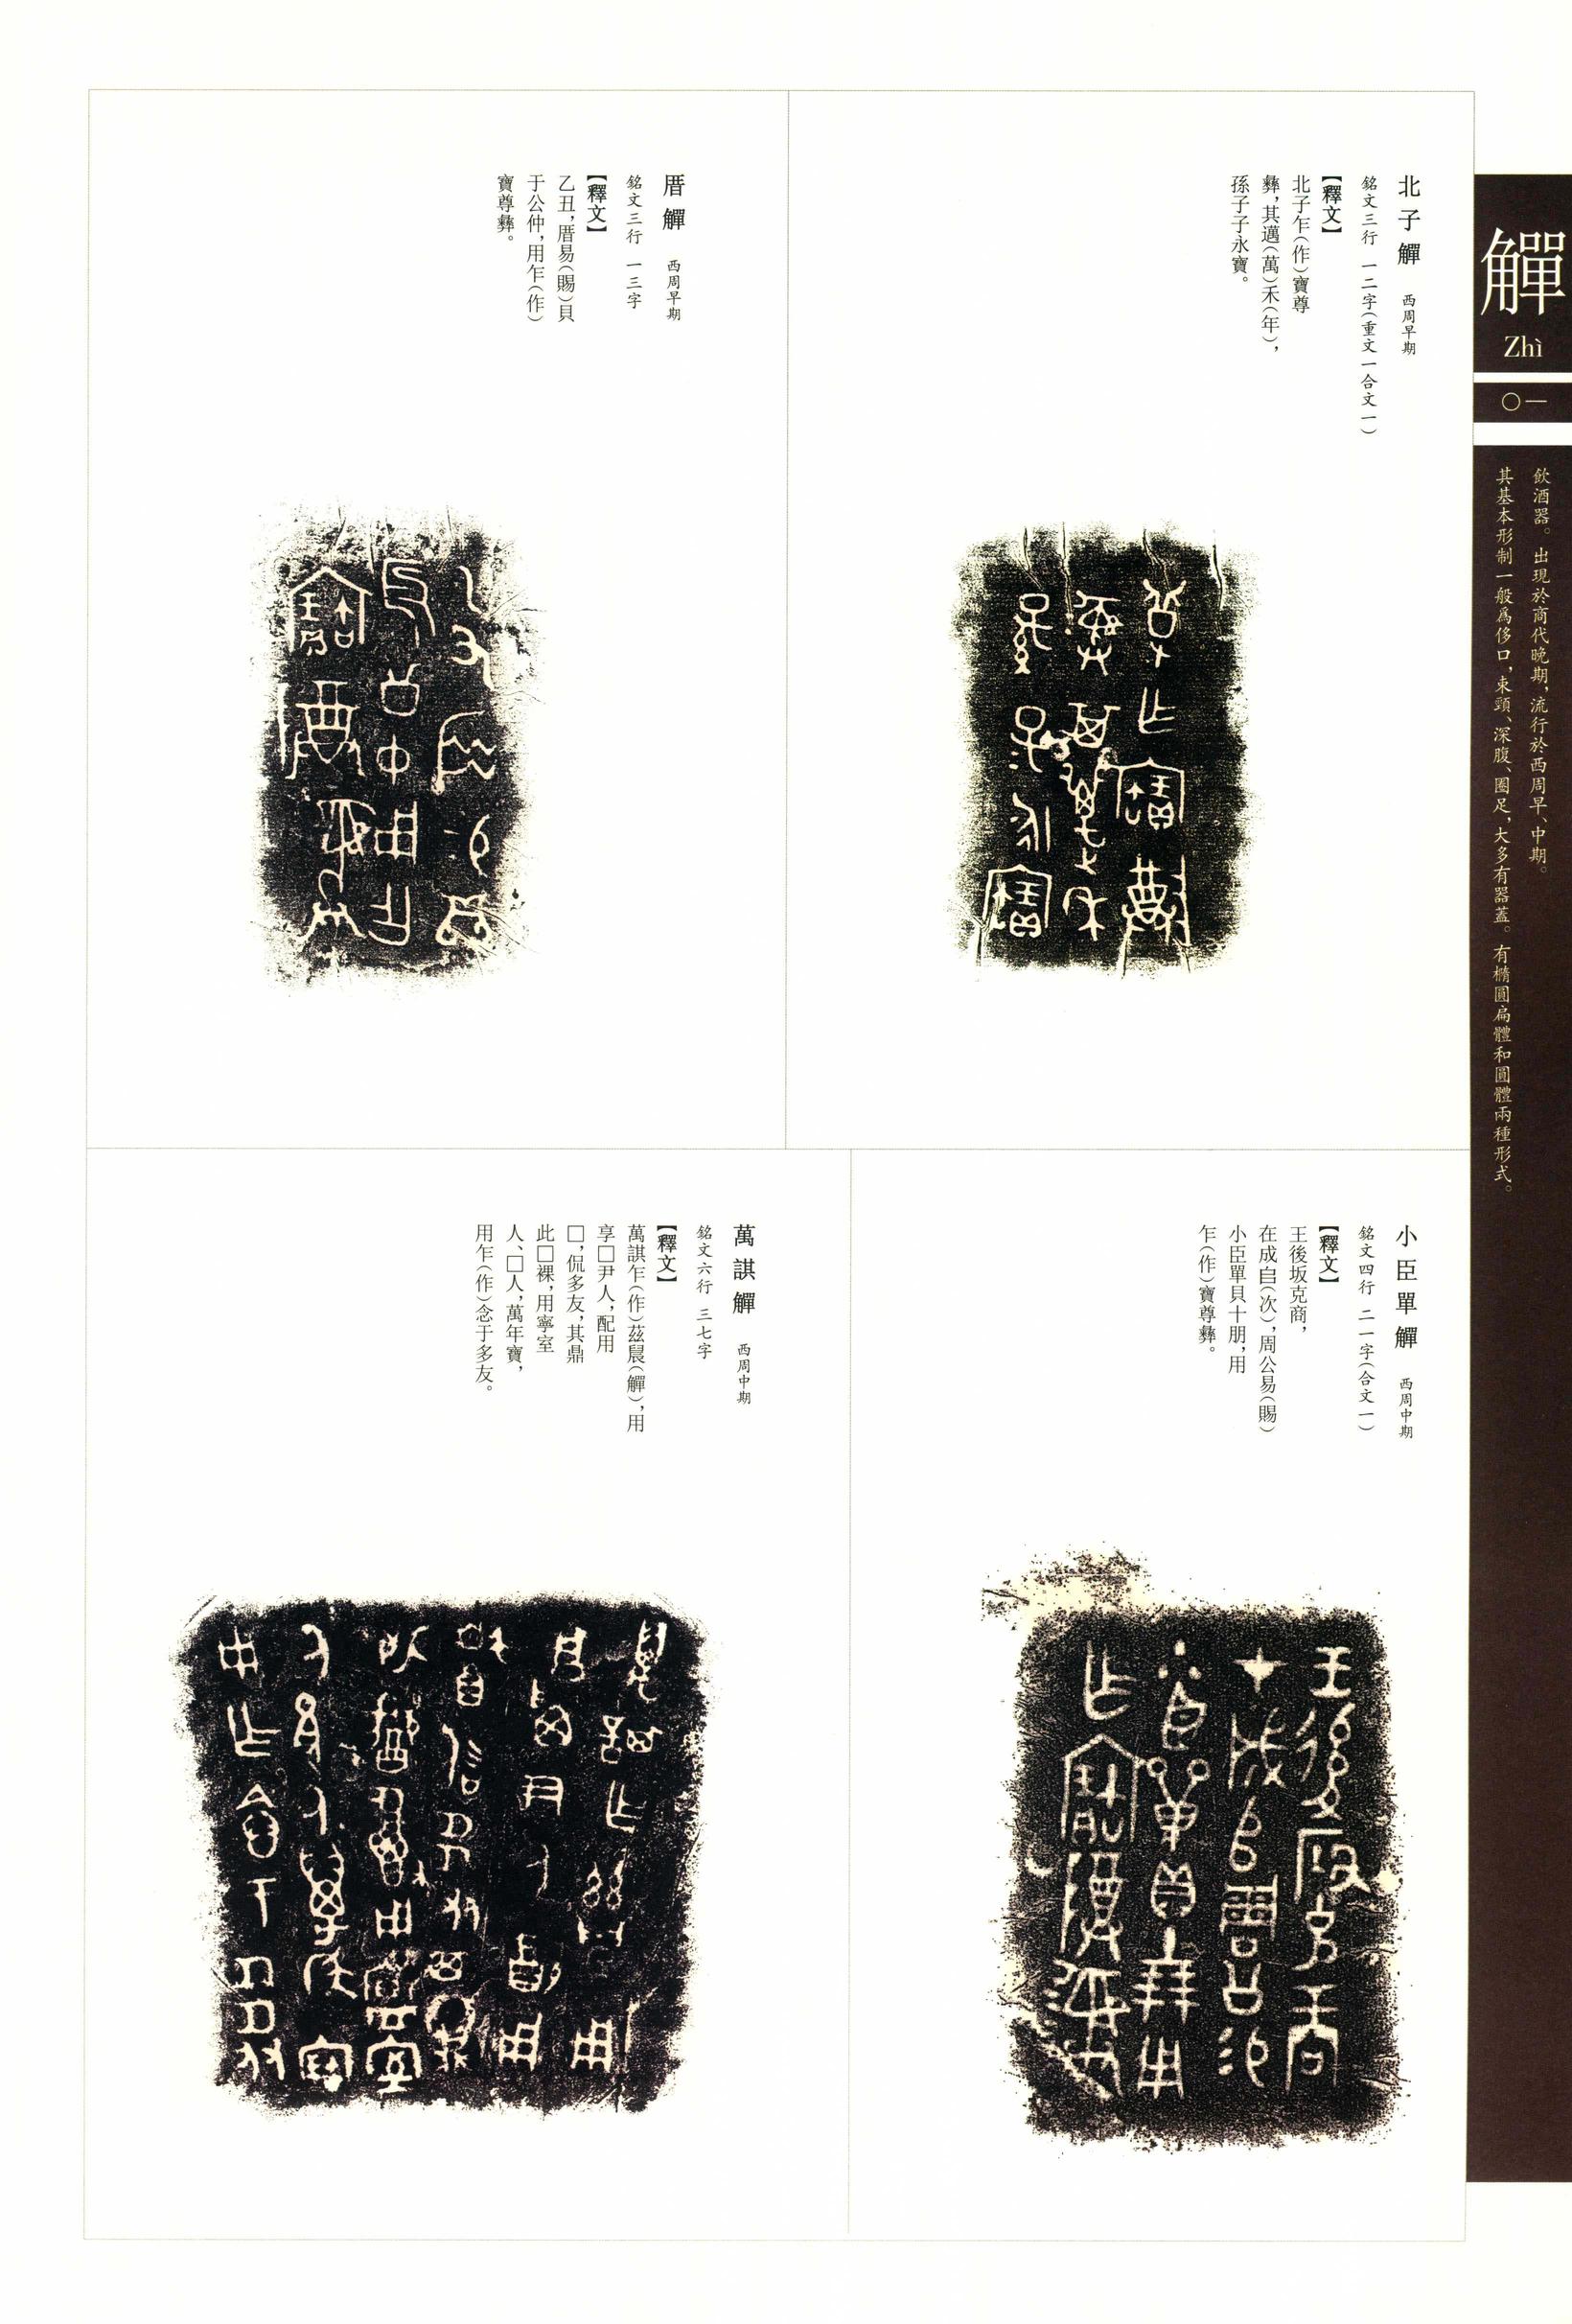 觶
Zhì
〇一
飲酒器。出現於商代晚期，流行於西周早、中期。
其基本形制一般爲侈口，束頸、深腹、圈足，大多有器蓋。有橢圓扁體和圓體兩種形式。
北子觶 西周早期
銘文三行 一二字（重文一合文一）
【釋文】
北子乍（作）寶尊
彝，其邁（萬）禾（年），
孫子子永寶。
厝觶 西周早期
銘文三行 一三字
【釋文】
乙丑，厝易（賜）貝
于公仲，用乍（作）
寶尊彝。
小臣單觶 西周中期
銘文四行 二一字（合文一）
【釋文】
王後坂克商，
在成𠂤（次），周公易（賜）
小臣單貝十朋，用
乍（作）寶尊彝。
萬諆觶 西周中期
銘文六行 三七字
【釋文】
萬諆乍（作）茲晨（觶），用
享□尹人，配用
□，侃多友，其鼎
此□祼，用寧室
人、□人，萬年寶，
用乍（作）念于多友。